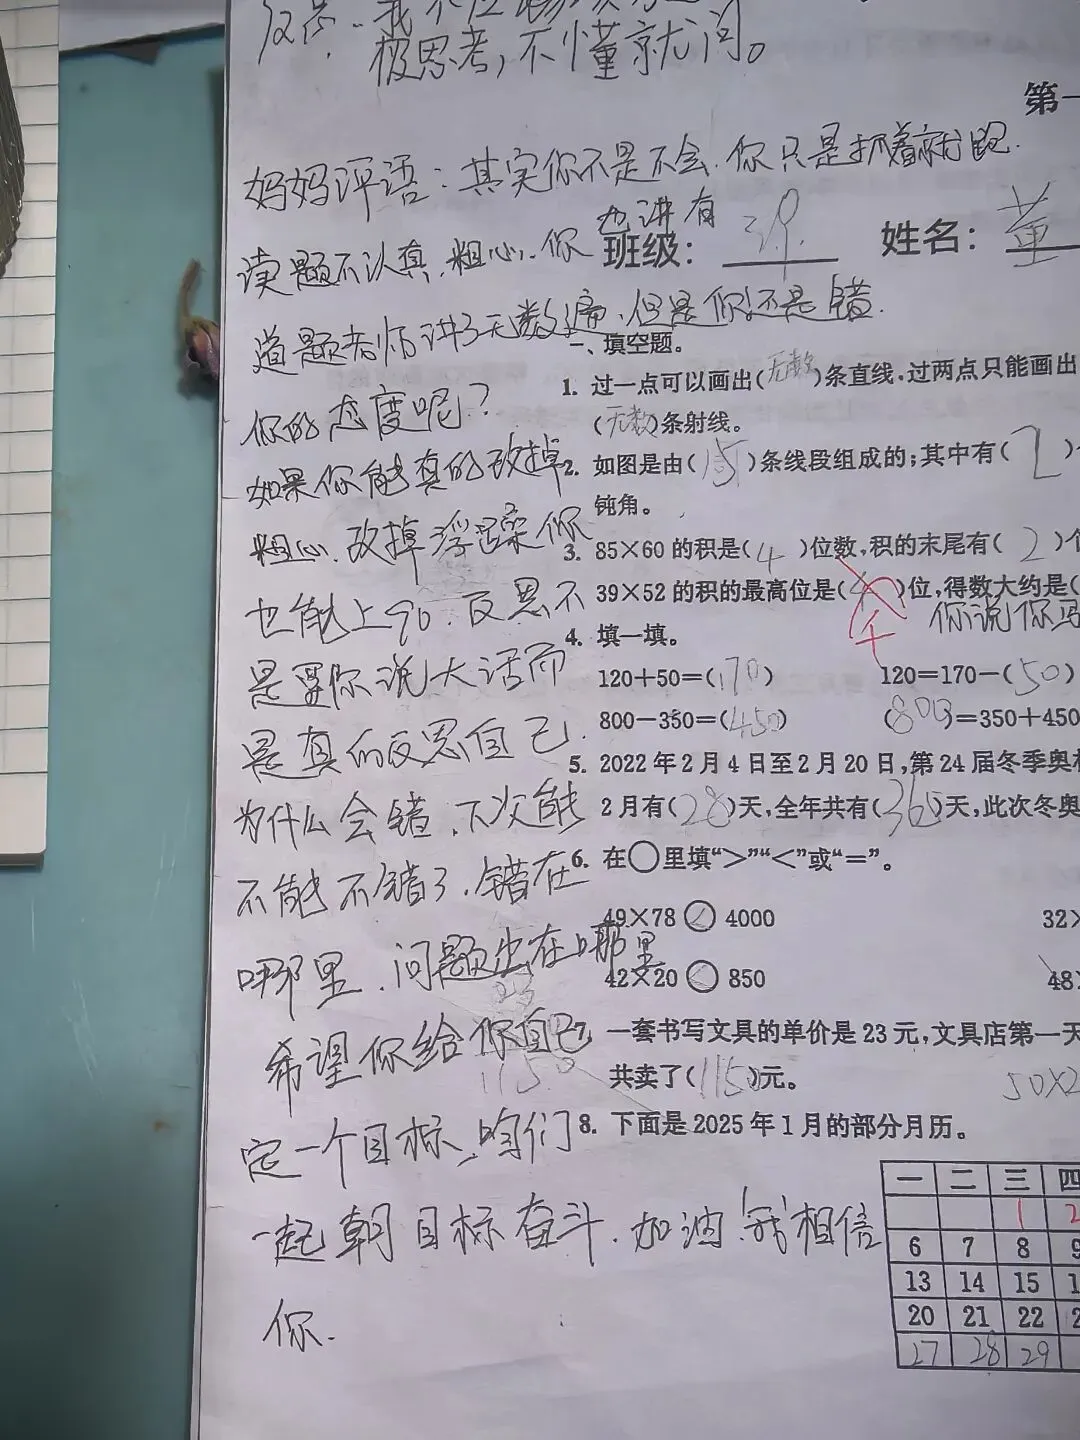 极思考,不懂就问。
第一
妈妈评语:其实你不是不会.你只是抓着就跑.
读题不认真.粗心.你也讲有
班级: 姓名:董
道题老师讲了无数遍、但是你还是错.
一、填空题。
1. 过一点可以画出(无数)条直线,过两点只能画出
(无数)条射线。
你的态度呢?
2. 如图是由(15)条线段组成的;其中有(2)个
钝角。
如果你能真的改掉
粗心、改掉浮躁你
3. 85×60的积是(4)位数,积的末尾有(2)个
39×52的积的最高位是( )位,得数大约是(
千
你说你马
也能上90.反思不
4. 填一填。
是要你说大话而
120+50=(170) 120=170-(50)
800-350=(450) (800)=350+450
是真的反思自己.
5. 2022年2月4日至2月20日,第24届冬季奥林
2月有(28)天,全年共有(365)天,此次冬奥
为什么会错.下次能
6. 在○里填“>”“<”或“=”。
不能不错了.错在
49×78<4000 32×
哪里.问题出在哪里
42×20<850 48×
希望你给你自己
7. 一套书写文具的单价是23元,文具店第一天
共卖了(1150)元。
50×2
定一个目标、咱们
8. 下面是2025年1月的部分月历。
一起朝目标奋斗.加油!我相信
你.
一 二 三 四
1 2
6 7 8 9
13 14 15 1
20 21 22 2
27 28 29